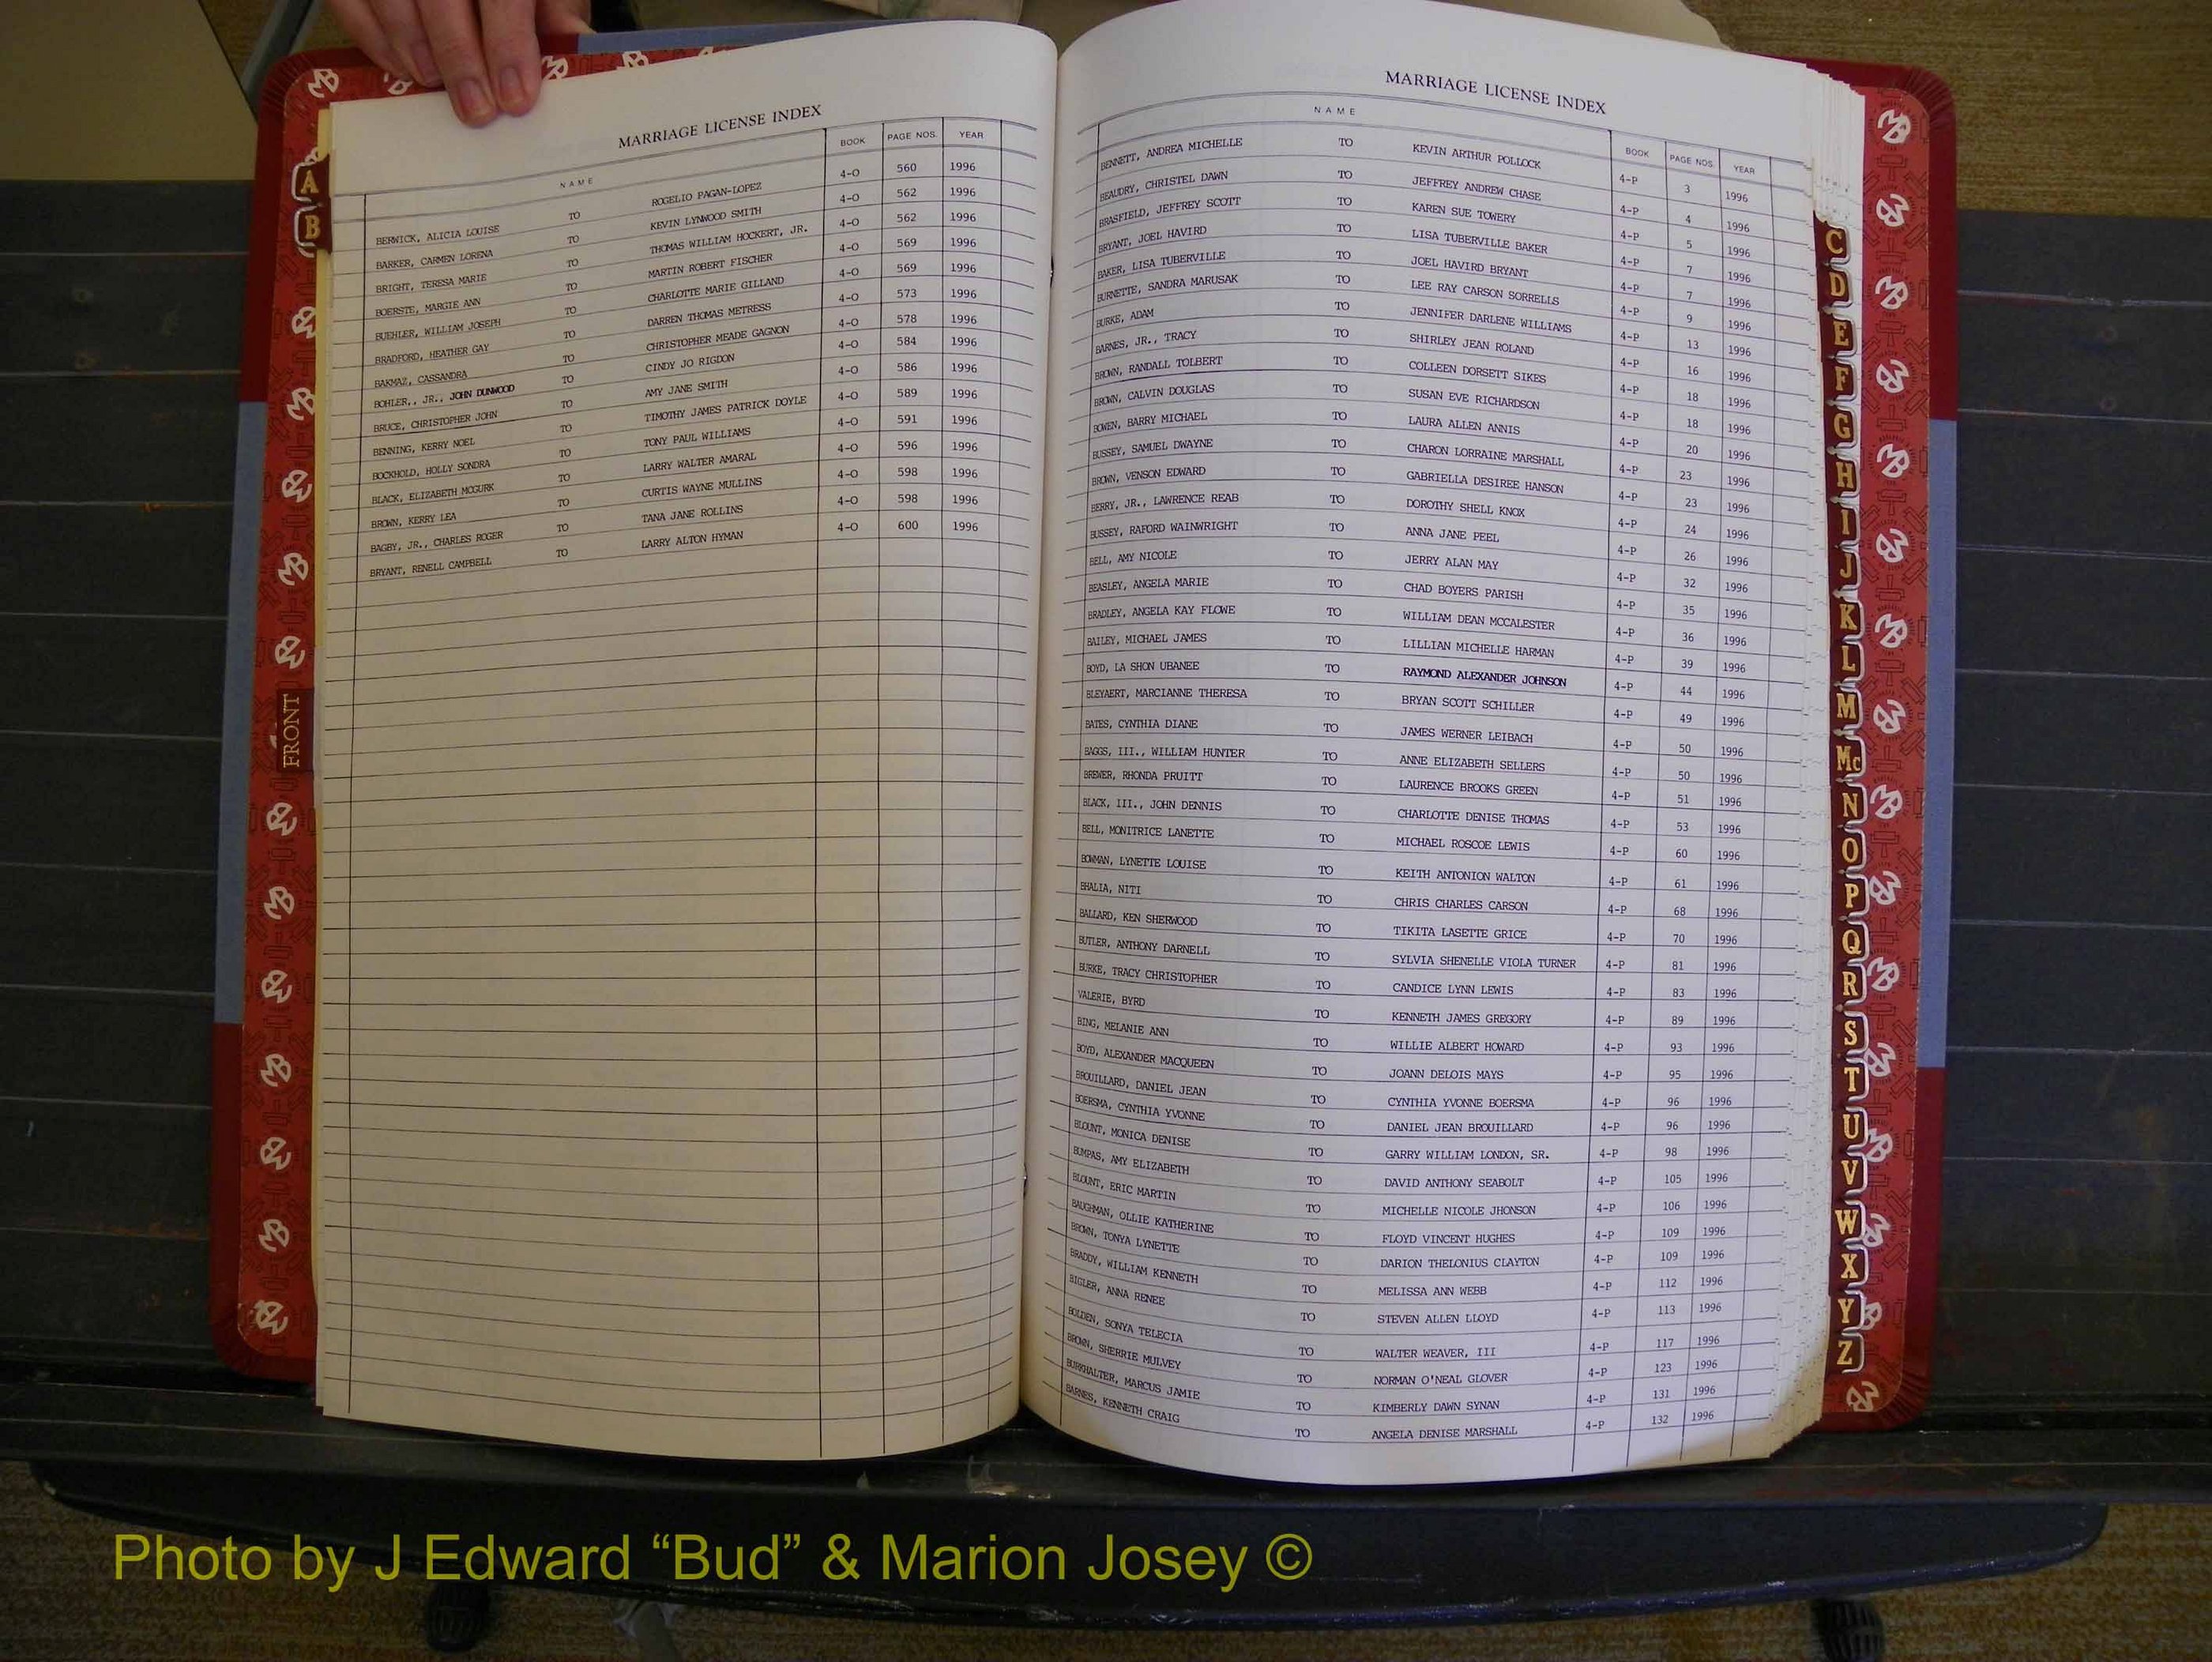 MARRIAGE LICENSE INDEX
NAME BOOK PAGE NOS. YEAR
BERWICK, ALICIA LOUISE TO ROGELIO PAGAN-LOPEZ 4-O 560 1996
BARKER, CARMEN LORENA TO KEVIN LYNWOOD SMITH 4-O 562 1996
BRIGHT, TERESA MARIE TO THOMAS WILLIAM HOCKERT, JR. 4-O 562 1996
BOERSTE, MARGIE ANN TO MARTIN ROBERT FISCHER 4-O 569 1996
BUEHLER, WILLIAM JOSEPH TO CHARLOTTE MARIE GILLAND 4-O 569 1996
BRADFORD, HEATHER GAY TO DARREN THOMAS METRESS 4-O 573 1996
BAKMAZ, CASSANDRA TO CHRISTOPHER MEADE GAGNON 4-O 578 1996
BOHLER,, JR., JOHN DUNWOOD TO CINDY JO RIGDON 4-O 584 1996
BRUCE, CHRISTOPHER JOHN TO AMY JANE SMITH 4-O 586 1996
BENNING, KERRY NOEL TO TIMOTHY JAMES PATRICK DOYLE 4-O 589 1996
BOCKHOLD, HOLLY SONDRA TO TONY PAUL WILLIAMS 4-O 591 1996
BLACK, ELIZABETH MCGURK TO LARRY WALTER AMARAL 4-O 596 1996
BROWN, KERRY LEA TO CURTIS WAYNE MULLINS 4-O 598 1996
BAGBY, JR., CHARLES ROGER TO TANA JANE ROLLINS 4-O 598 1996
BRYANT, RENELL CAMPBELL TO LARRY ALTON HYMAN 4-O 600 1996
MARRIAGE LICENSE INDEX
NAME BOOK PAGE NOS. YEAR
BENNETT, ANDREA MICHELLE TO KEVIN ARTHUR POLLOCK 4-P 3 1996
BEAUDRY, CHRISTEL DAWN TO JEFFREY ANDREW CHASE 4-P 4 1996
BRASFIELD, JEFFREY SCOTT TO KAREN SUE TOWERY 4-P 5 1996
BRYANT, JOEL HAVIRD TO LISA TUBERVILLE BAKER 4-P 7 1996
BAKER, LISA TUBERVILLE TO JOEL HAVIRD BRYANT 4-P 7 1996
BURNETTE, SANDRA MARUSAK TO LEE RAY CARSON SORRELLS 4-P 9 1996
BURKE, ADAM TO JENNIFER DARLENE WILLIAMS 4-P 13 1996
BARNES, JR., TRACY TO SHIRLEY JEAN ROLAND 4-P 16 1996
BROWN, RANDALL TOLBERT TO COLLEEN DORSETT SIKES 4-P 18 1996
BROWN, CALVIN DOUGLAS TO SUSAN EVE RICHARDSON 4-P 18 1996
BOWEN, BARRY MICHAEL TO LAURA ALLEN ANNIS 4-P 20 1996
BUSSEY, SAMUEL DWAYNE TO CHARON LORRAINE MARSHALL 4-P 23 1996
BROWN, VENSON EDWARD TO GABRIELLA DESIREE HANSON 4-P 23 1996
BERRY, JR., LAWRENCE REAB TO DOROTHY SHELL KNOX 4-P 24 1996
BUSSEY, RAFORD WAINWRIGHT TO ANNA JANE PEEL 4-P 26 1996
BELL, AMY NICOLE TO JERRY ALAN MAY 4-P 32 1996
BEASLEY, ANGELA MARIE TO CHAD BOYERS PARISH 4-P 35 1996
BRADLEY, ANGELA KAY FLOWE TO WILLIAM DEAN MCCALESTER 4-P 36 1996
BAILEY, MICHAEL JAMES TO LILLIAN MICHELLE HARMAN 4-P 39 1996
BOYD, LA SHON UBANEE TO RAYMOND ALEXANDER JOHNSON 4-P 44 1996
BLEYAERT, MARCIANNE THERESA TO BRYAN SCOTT SCHILLER 4-P 49 1996
BATES, CYNTHIA DIANE TO JAMES WERNER LEIBACH 4-P 50 1996
BAGGS, III., WILLIAM HUNTER TO ANNE ELIZABETH SELLERS 4-P 50 1996
BREWER, RHONDA PRUITT TO LAURENCE BROOKS GREEN 4-P 51 1996
BLACK, III., JOHN DENNIS TO CHARLOTTE DENISE THOMAS 4-P 53 1996
BELL, MONITRICE LANETTE TO MICHAEL ROSCOE LEWIS 4-P 60 1996
BOWMAN, LYNETTE LOUISE TO KEITH ANTONION WALTON 4-P 61 1996
BHALIA, NITI TO CHRIS CHARLES CARSON 4-P 68 1996
BALLARD, KEN SHERWOOD TO TIKITA LASETTE GRICE 4-P 70 1996
BUTLER, ANTHONY DARNELL TO SYLVIA SHENELLE VIOLA TURNER 4-P 81 1996
BURKE, TRACY CHRISTOPHER TO CANDICE LYNN LEWIS 4-P 83 1996
VALERIE, BYRD TO KENNETH JAMES GREGORY 4-P 89 1996
BING, MELANIE ANN TO WILLIE ALBERT HOWARD 4-P 93 1996
BOYD, ALEXANDER MACQUEEN TO JOANN DELOIS MAYS 4-P 95 1996
BROUILLARD, DANIEL JEAN TO CYNTHIA YVONNE BOERSMA 4-P 96 1996
BOERSMA, CYNTHIA YVONNE TO DANIEL JEAN BROUILLARD 4-P 96 1996
BLOUNT, MONICA DENISE TO GARRY WILLIAM LONDON, SR. 4-P 98 1996
BUMPAS, AMY ELIZABETH TO DAVID ANTHONY SEABOLT 4-P 105 1996
BLOUNT, ERIC MARTIN TO MICHELLE NICOLE JHONSON 4-P 106 1996
BAUGHMAN, OLLIE KATHERINE TO FLOYD VINCENT HUGHES 4-P 109 1996
BROWN, TONYA LYNETTE TO DARION THELONIUS CLAYTON 4-P 109 1996
BRADDY, WILLIAM KENNETH TO MELISSA ANN WEBB 4-P 112 1996
BIGLER, ANNA RENEE TO STEVEN ALLEN LLOYD 4-P 113 1996
BOLDEN, SONYA TELECIA TO WALTER WEAVER, III 4-P 117 1996
BROWN, SHERRIE MULVEY TO NORMAN O'NEAL GLOVER 4-P 123 1996
BURKHALTER, MARCUS JAMIE TO KIMBERLY DAWN SYNAN 4-P 131 1996
BARNES, KENNETH CRAIG TO ANGELA DENISE MARSHALL 4-P 132 1996
A
B
FRONT
C
D
E
F
G
H
I
J
K
L
M
Mc
N
O
P
Q
R
S
T
U
V
W
X
Y
Z
Photo by J Edward “Bud” & Marion Josey ©